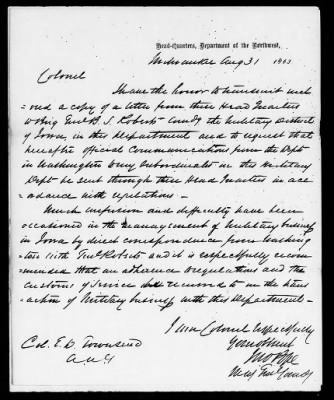 Head-Quarters, Department of the Northwest,
Milwaukee Aug 31 1863
Colonel
I have the honor to transmit inclosed
a copy of a letter from these Head Quarters
to Brig Genl B. S. Roberts Comdg the Military District
of Iowa, in this Department and to request that
hereafter official Communications from the Dept
in Washington to my Subordinates in this Military
Dept be sent through these Head Quarters in acc
ordance with regulations -
Much confusion and difficulty have been
occasioned in the management of Military business
in Iowa by direct correspondence from Washing
ton with Genl Roberts and it is respectfully recom
mended that an adherence to regulations and the
Customs of Service be returned to in the trans
action of Military business with this Department -
I am Colonel Respectfully
Your obt Servt
Jno Pope
Maj Genl Comdg
Col. E. D. Townsend
A A G